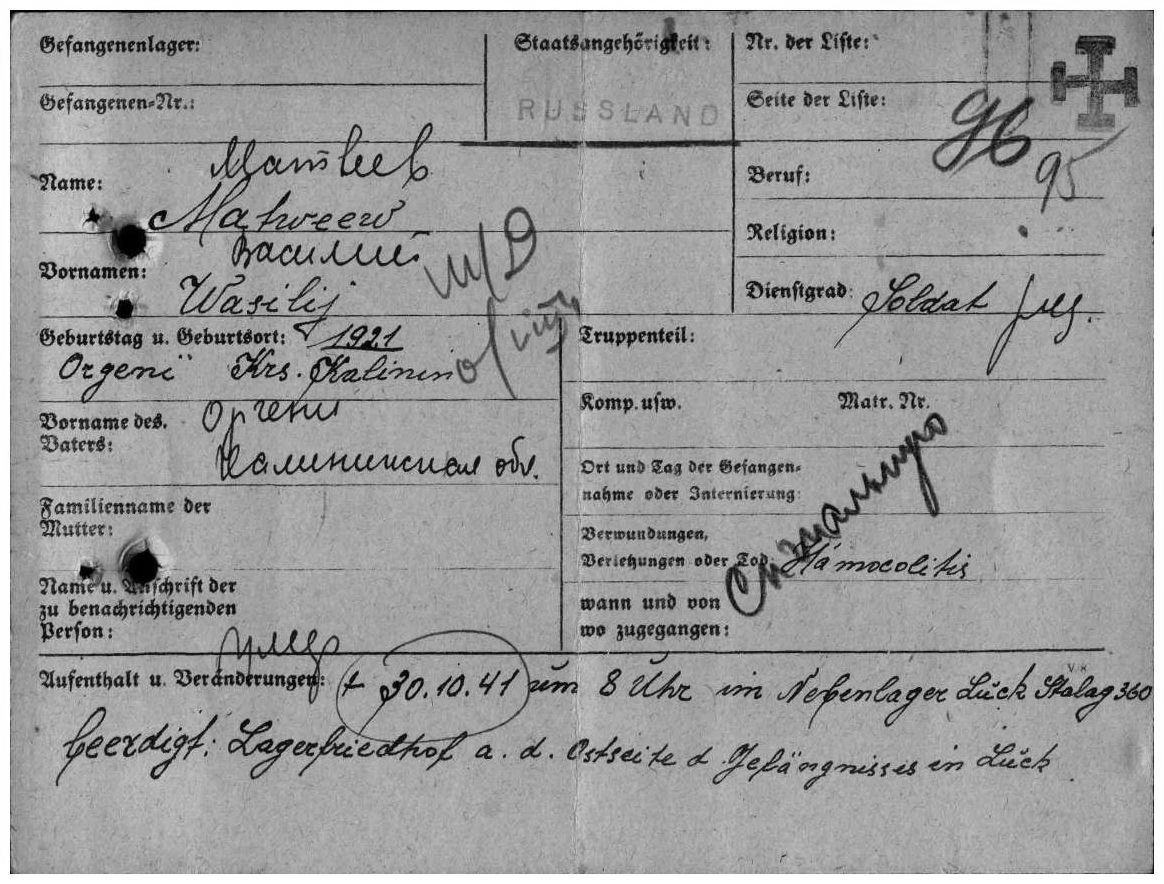 Gefangenenlager:
Staatsangehörigkeit:
Nr. der Liste:
Gefangenen-Nr.:
RUSSLAND
Seite der Liste:
95
Матвеев
Name:
Matweew
Beruf:
Василий
Religion:
Vornamen:
Wasilij
Dienstgrad: Soldat
Geburtstag u. Geburtsort: 1921
Orgeni Krs. Kalinin
Truppenteil:
Vorname des
Vaters:
Оргени
Калининская обл.
Komp. usw.
Matr. Nr.
Ort und Tag der Gefangen-
nahme oder Internierung:
Familienname der
Mutter:
Verwundungen,
Verletzungen oder Tod: Hämocolitis
Name u. Anschrift der
zu benachrichtigenden
Person:
wann und von
wo zugegangen:
Aufenthalt u. Veränderungen: + 30.10.41 um 8 Uhr im Nebenlager Luck Stalag 360
beerdigt: Lagerfriedhof a. d. Ostseite d Gefängnisses in Luck